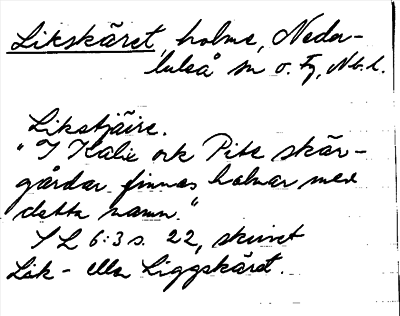 Likskäret, holme, Neder-
luleå sn o. Fg, Nb. l.
Likstjäire.
"I Kalix och Pite skär-
gårdar finnas holmar med
detta namn."
SL 6:3 s. 22, skrivet
Lik- eller Liggskäret.